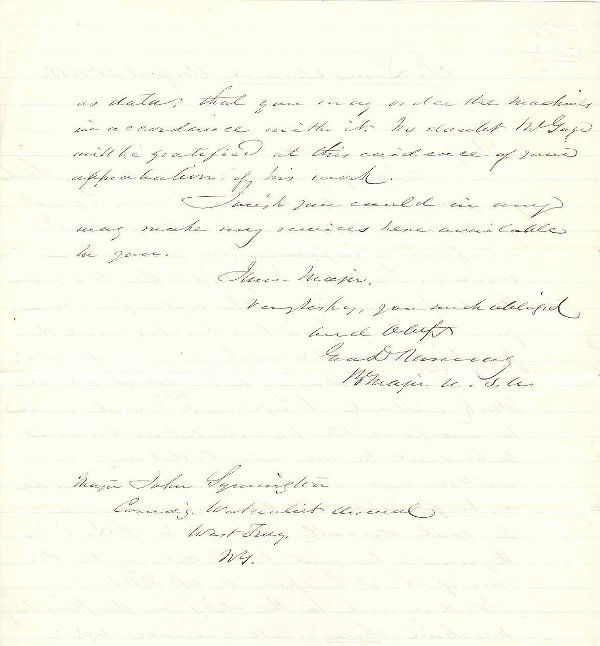 as data, that you may order the machines
in accordance with it. No doubt Mr Gage
will be gratified at this evidence of your
approbation of his work.
I wish you could in any
way make my services here available
to you.
I am Major,
Very respy, your much obliged
and Obt
Geo D Ramsay
Bt Major U. S. A.
Major John Symington
Comdg Watervliet Arsenal
West Troy.
N.Y.